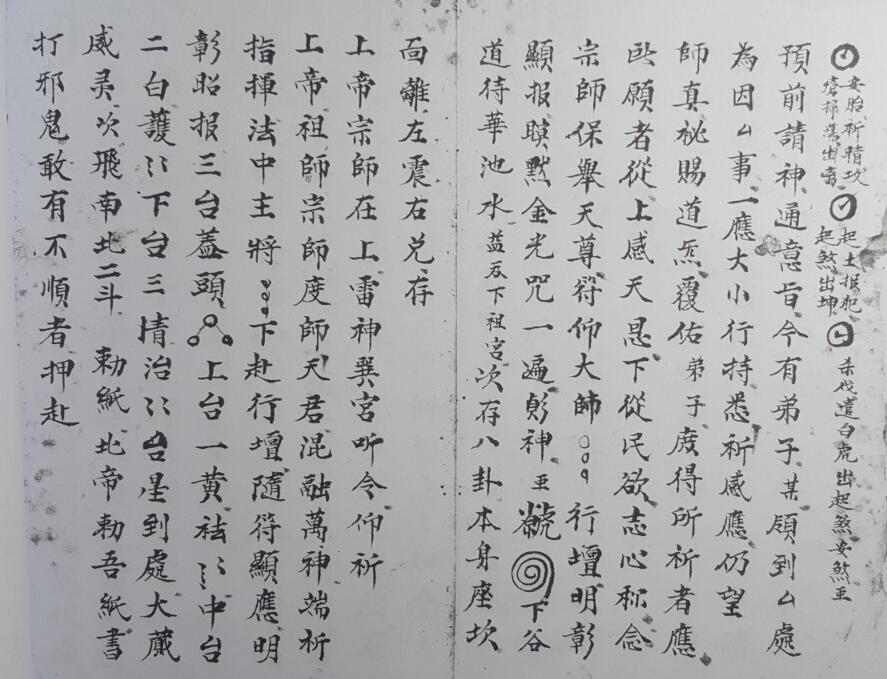 安胎祈晴 出 起土報犯 起煞出坤 杀伐遣白虎出起煞安煞
預前請神通意旨今有弟子某領到ム處
為因ム事一應大小行持悉祈感應仍望
師真祕賜道炁覆佑弟子度得所祈者應
所願者從上感天恩下從民欲志心称念
宗師保舉天尊符仰大師 行壇明彰
顯报暝默金光咒一遍 神 下谷
道待華池水 吞下祖宮次存八卦本身座坎
面離左震右兌存
上帝宗師在上雷神巽宮听令仰祈
上帝祖師宗師度師天君混融萬神端祈
指揮法中主將 下赴行壇隨符顯應明
彰昭报三台蓋頭 上台一黃祛〻中台
二白護〻下台三情治〻台星到處大藏
威灵次飛南北二斗 勅紙北帝勅吾紙書
打邪鬼敢有不順者押赴